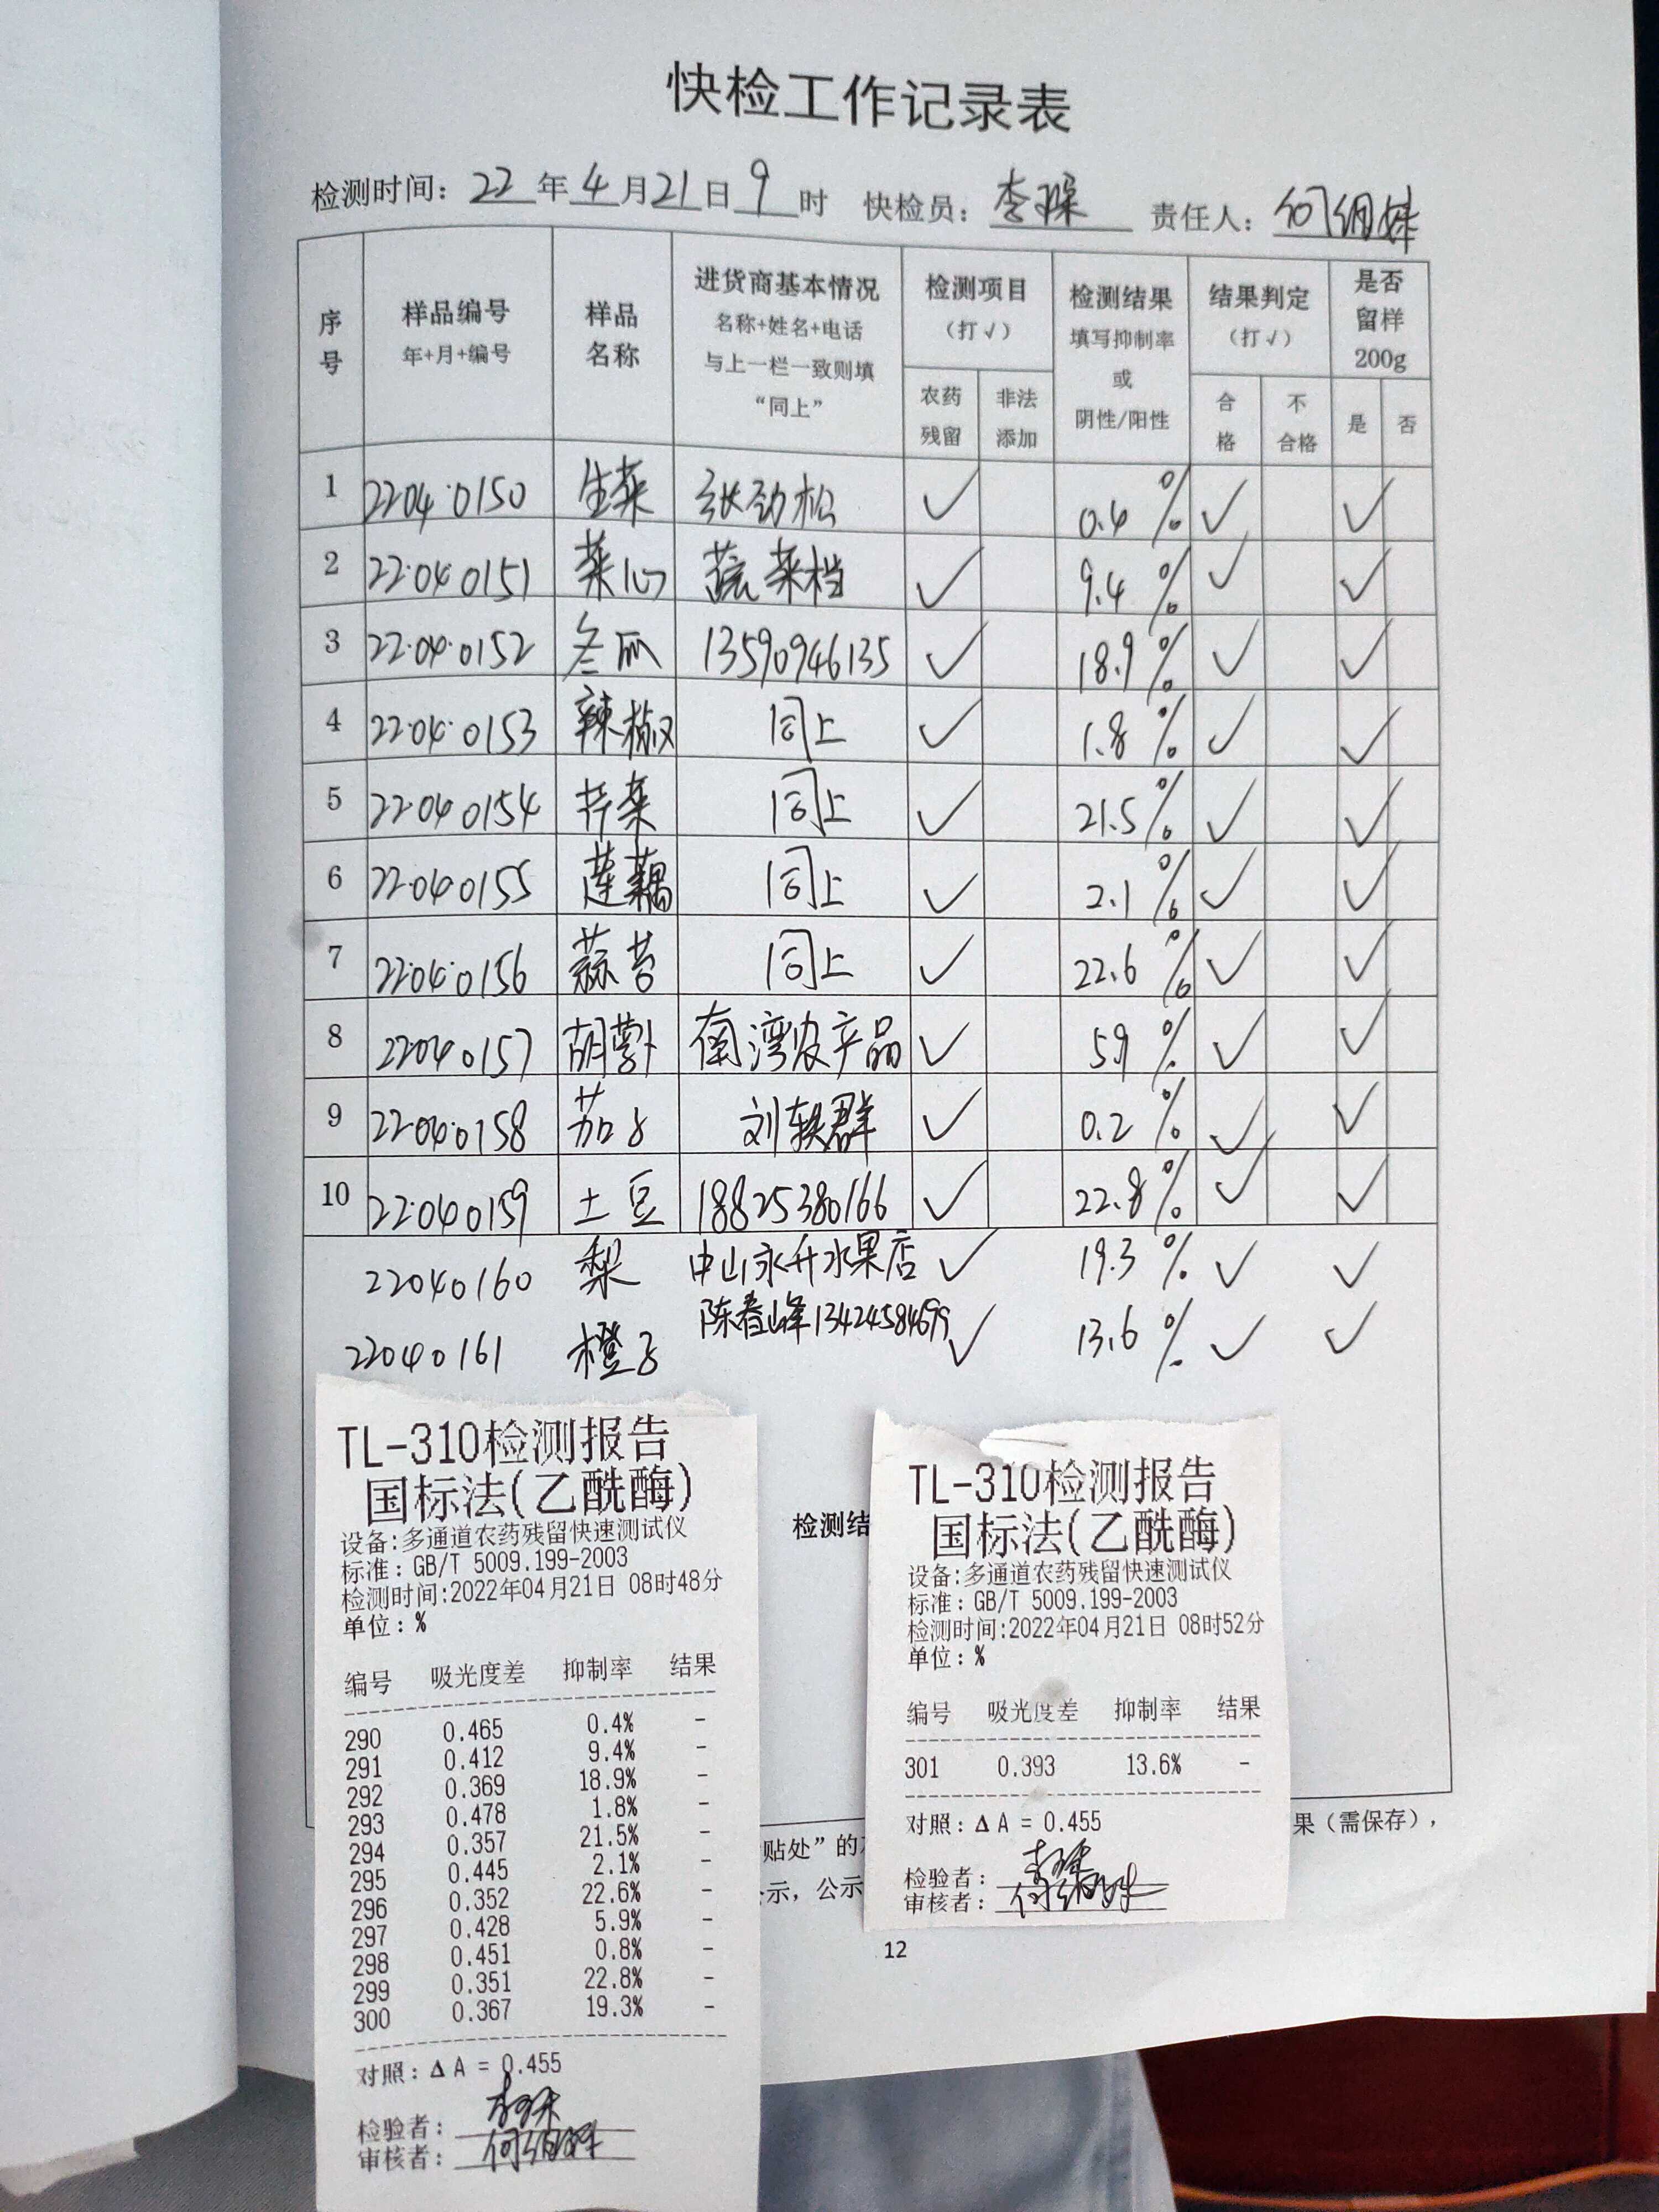 快检工作记录表
检测时间：22年4月21日9时 快检员：李琛 责任人：何绸妹
序号 样品编号 年+月+编号 样品名称 进货商基本情况 名称+姓名+电话 与上一栏一致则填“同上” 检测项目（打√） 农药残留 非法添加 检测结果 填写抑制率或阴性/阳性 结果判定（打√） 合格 不合格 是否留样200g 是 否
1 2204·0150 生菜 张劲松 ✓ 0.4% ✓ ✓
2 22·040151 菜心 蔬菜档 ✓ 9.4% ✓ ✓
3 22·04·0152 冬瓜 13590946135 ✓ 18.9% ✓ ✓
4 22·04·0153 辣椒 同上 ✓ 1.8% ✓ ✓
5 22·040154 芹菜 同上 ✓ 21.5% ✓ ✓
6 22·040155 莲藕 同上 ✓ 2.1% ✓ ✓
7 22·04·0156 蒜苔 同上 ✓ 22.6% ✓ ✓
8 22040157 胡萝卜 南湾农产品 ✓ 5.9% ✓ ✓
9 22·04·0158 茄子 刘轶群 ✓ 0.2% ✓ ✓
10 22·040159 土豆 18825380166 ✓ 22.8% ✓ ✓
22040160 梨 中山永升水果店 ✓ 19.3% ✓ ✓
22040161 橙子 陈春峰13424584699 ✓ 13.6% ✓ ✓
检测结
TL-310检测报告
国标法(乙酰酶)
设备:多通道农药残留快速测试仪
标准: GB/T 5009.199-2003
检测时间:2022年04月21日 08时48分
单位: %
编号 吸光度差 抑制率 结果
290 0.465 0.4% -
291 0.412 9.4% -
292 0.369 18.9% -
293 0.478 1.8% -
294 0.357 21.5% -
295 0.445 2.1% -
296 0.352 22.6% -
297 0.428 5.9% -
298 0.451 0.8% -
299 0.351 22.8% -
300 0.367 19.3% -
对照: Δ A = 0.455
检验者: 李琛
审核者: 何绸妹
TL-310检测报告
国标法(乙酰酶)
设备:多通道农药残留快速测试仪
标准: GB/T 5009.199-2003
检测时间:2022年04月21日 08时52分
单位: %
编号 吸光度差 抑制率 结果
301 0.393 13.6% -
对照: Δ A = 0.455
检验者: 李琛
审核者: 何绸妹
贴处”的
果（需保存），
示，公示
12